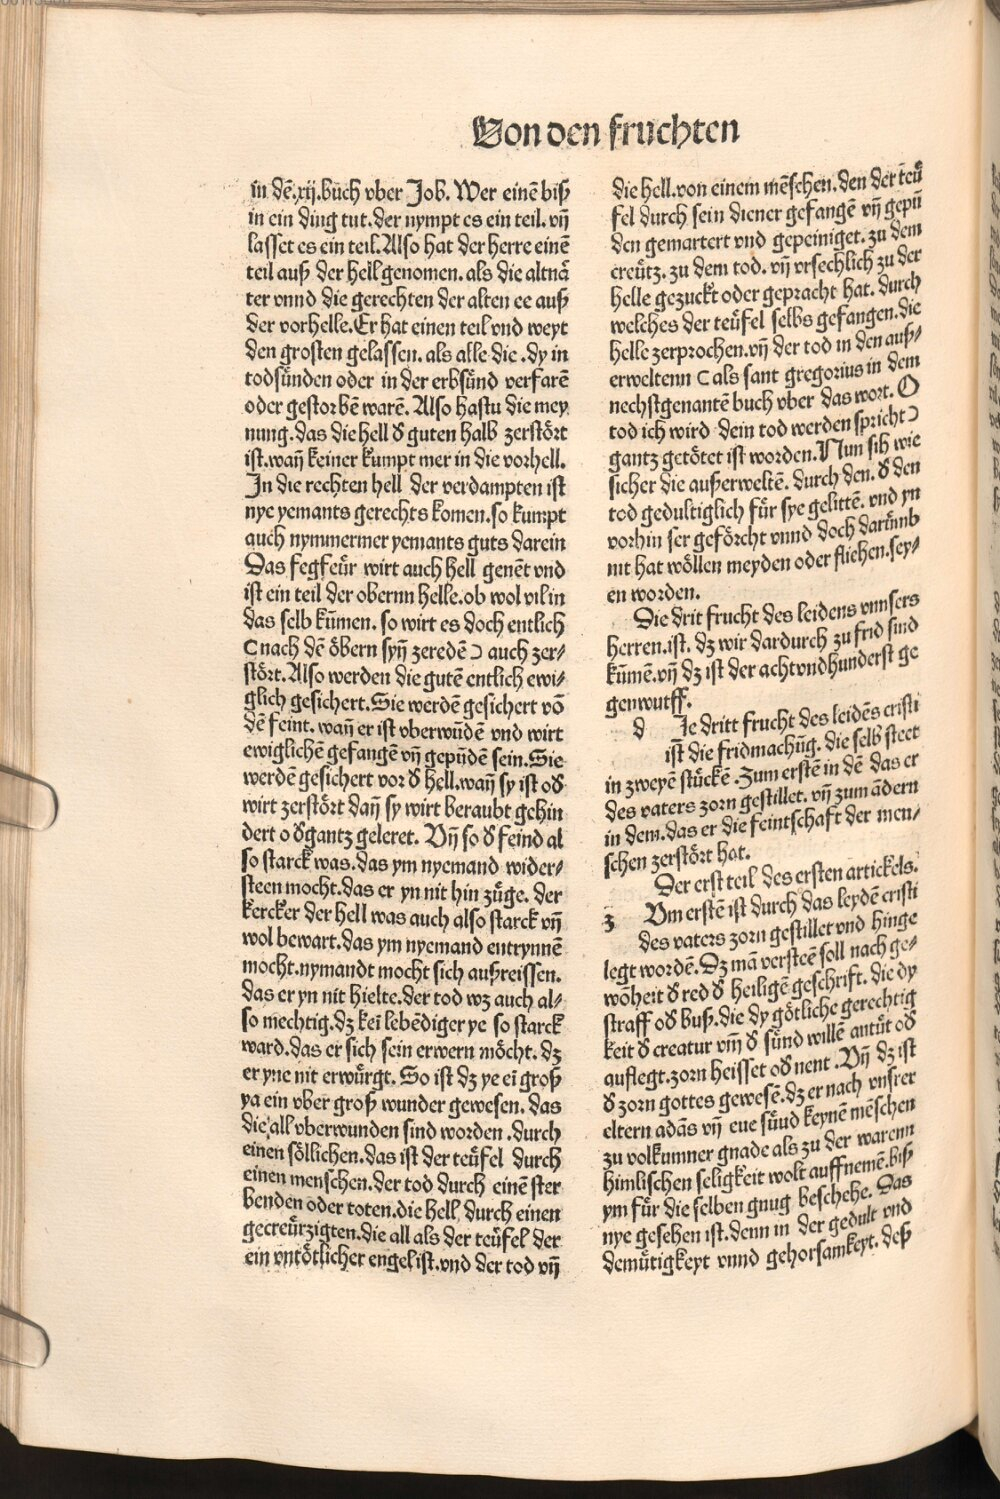 Von den fruchten
in dẽ.xij.buch vber Job. Wer einẽ biß
in ein ding tut.der nympt es ein teil.vñ
lasset es ein teil.Also hat der herre einẽ
teil auß der hell genomen.als die altuã
ter vnnd die gerechten der alten ee auß
der vorhelle.Er hat einen teil vnd weyt
den grosten gelassen.als alle die .dy in
todsünden oder in der erbsünd verfarẽ
oder gestorbẽ warẽ. Also hastu die mey
nung.das die hell ð guten halb zerstört
ist.wañ keiner kumpt mer in die vorhell.
In die rechten hell der verdampten ist
nye yemants gerechts komen.so kumpt
auch nymmermer yemants guts darein
Das fegfeür wirt auch hell genẽt vnd
ist ein teil der obernn helle.ob wol vil in
das selb kũmen. so wirt es doch entlich
(nach dẽ öbern syñ zeredẽ) auch zer⸗
stört.Also werden die gutẽ entlich ewi⸗
glich gesichert.Sie werdẽ gesichert võ
dẽ feint. wañ er ist vberwũdẽ vnd wirt
ewiglichẽ gefangẽ vñ gepũdẽ sein.Sie
werdẽ gesichert vor ð hell.wañ sy ist oð
wirt zerstört dañ sy wirt beraubt gehin
dert o ðgantz geleret. Vñ so ð feind al
so starck was.das ym nyemand wider⸗
steen mocht.das er yn nit hin züge. der
kercker der hell was auch also starck vñ
wol bewart.das ym nyemand entrynnẽ
mocht.nymandt mocht sich außreissen.
das er yn nit hielte.der tod wz auch al⸗
so mechtig.dz kei lebẽdiger ye so starck
ward.das er sich sein erwern möcht. dz
er yne nit erwürgt. So ist dz ye ei groß
ya ein vber groß wunder gewesen. das
die all vberwunden sind worden .durch
einen söllichen.das ist der teüfel durch
einen menschen.der tod durch einẽ ster
benden oder toten.die hell durch einen
gecreützigten.die all als der teüfel der
ein vntötlicher engel ist.vnd der tod vñ
die hell.von einem mẽschen.den der teü
fel durch sein diener gefangẽ vñ gepũ
den gemartert vnd gepeiniget. zu dem
creütz. zu dem tod. vñ vrsechlich zu der
helle gezuckt oder gepracht hat. durch
welches der teüfel selbs gefangen.die
helle zerprochen.vñ der tod in den auß⸗
erweltenn (als sant gregorius in dem
nechstgenantẽ buch vber das wort. O
tod ich wird dein tod werden spricht)
gantz getötet ist worden.Nun sih wie
sicher die außerweltẽ. durch den. ð den
tod gedultiglich für sye gelittẽ. vnd yn
vorhin ser geförcht vnnd doch darümb
nit hat wöllen meyden oder fliehen.sey⸗
en worden.
Die drit frucht des leidens vnnsers
herren.ist. dz wir dardurch zu frid sind
kũmẽ.vñ dz ist der achtvndhunderst ge
genwurff.
d Ie dritt frucht des leidẽs cristi
ist die fridmachũg. die selb steet
in zweyẽ stückẽ .Zum erstẽ in dẽ das er
des vaters zorn gestillet. vñ zum ãdern
in dem.das er die feintschaft der men⸗
schen zerstört hat.
Der erst teil des ersten artickels.
z Vm erstẽ ist durch das leydẽ cristi
des vaters zorn gestillet vnd hinge
legt wordẽ.Dz mã versteẽ soll nach ge⸗
wõheit ð red ð heiligẽ geschrift. die dy
straff oð buß.die dy götliche gerechtig
keit ð creatur vm̃ ð sünd willẽ antüt oð
auflegt.zorn heisset oð nent .Vñ dz ist
ð zorn gottes gewesẽ.dz er nach vnsrer
eltern adãs vñ eue süud keynẽ mẽschen
zu volkumner gnade als zu der warenn
himlischen seligkeit wolt auffnemẽ.biß
ym für die selben gnug beschehe. Das
nye gesehen ist.denn in der gedult vnd
demütigkeyt vnnd gehorsamkeyt. deß